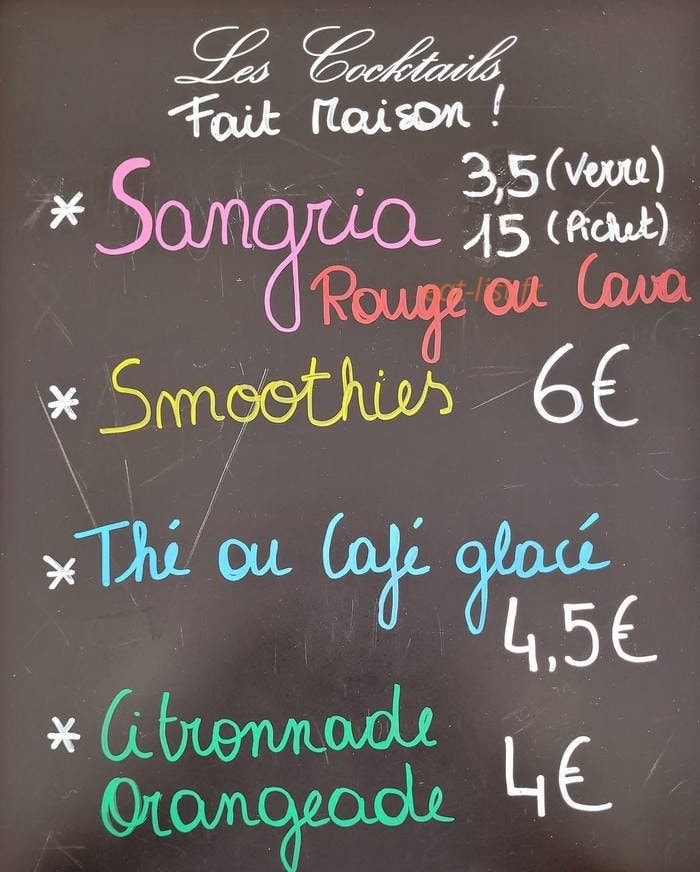 Les Cocktails
Fait Maison !
* Sangria 3,5 (Verre)
15 (Pichet)
Rouge ou Cava
* Smoothies 6€
* Thé ou Café glacé
4,5€
* Citronnade
Orangeade 4€